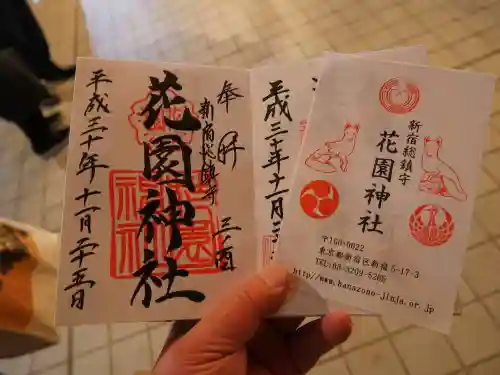 奉拝
三の酉
新宿総鎮守
花園神社
平成三十年十一月二十五日
平成三十年十一
新宿総鎮守
花園神社
〒160-0022
東京都新宿区新宿5-17-3
TEL:03-3209-5265
http://www.hanazono-jinja.or.jp